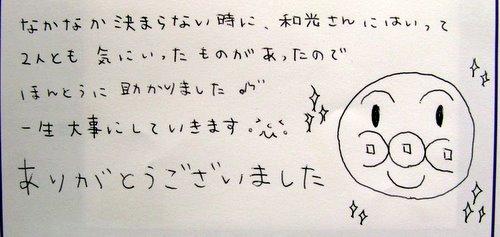 なかなか決まらない時に、和光さんにはいって
2人とも気にいったものがあったので
ほんとうに助かりました♪
一生大事にしていきます
ありがとうございました